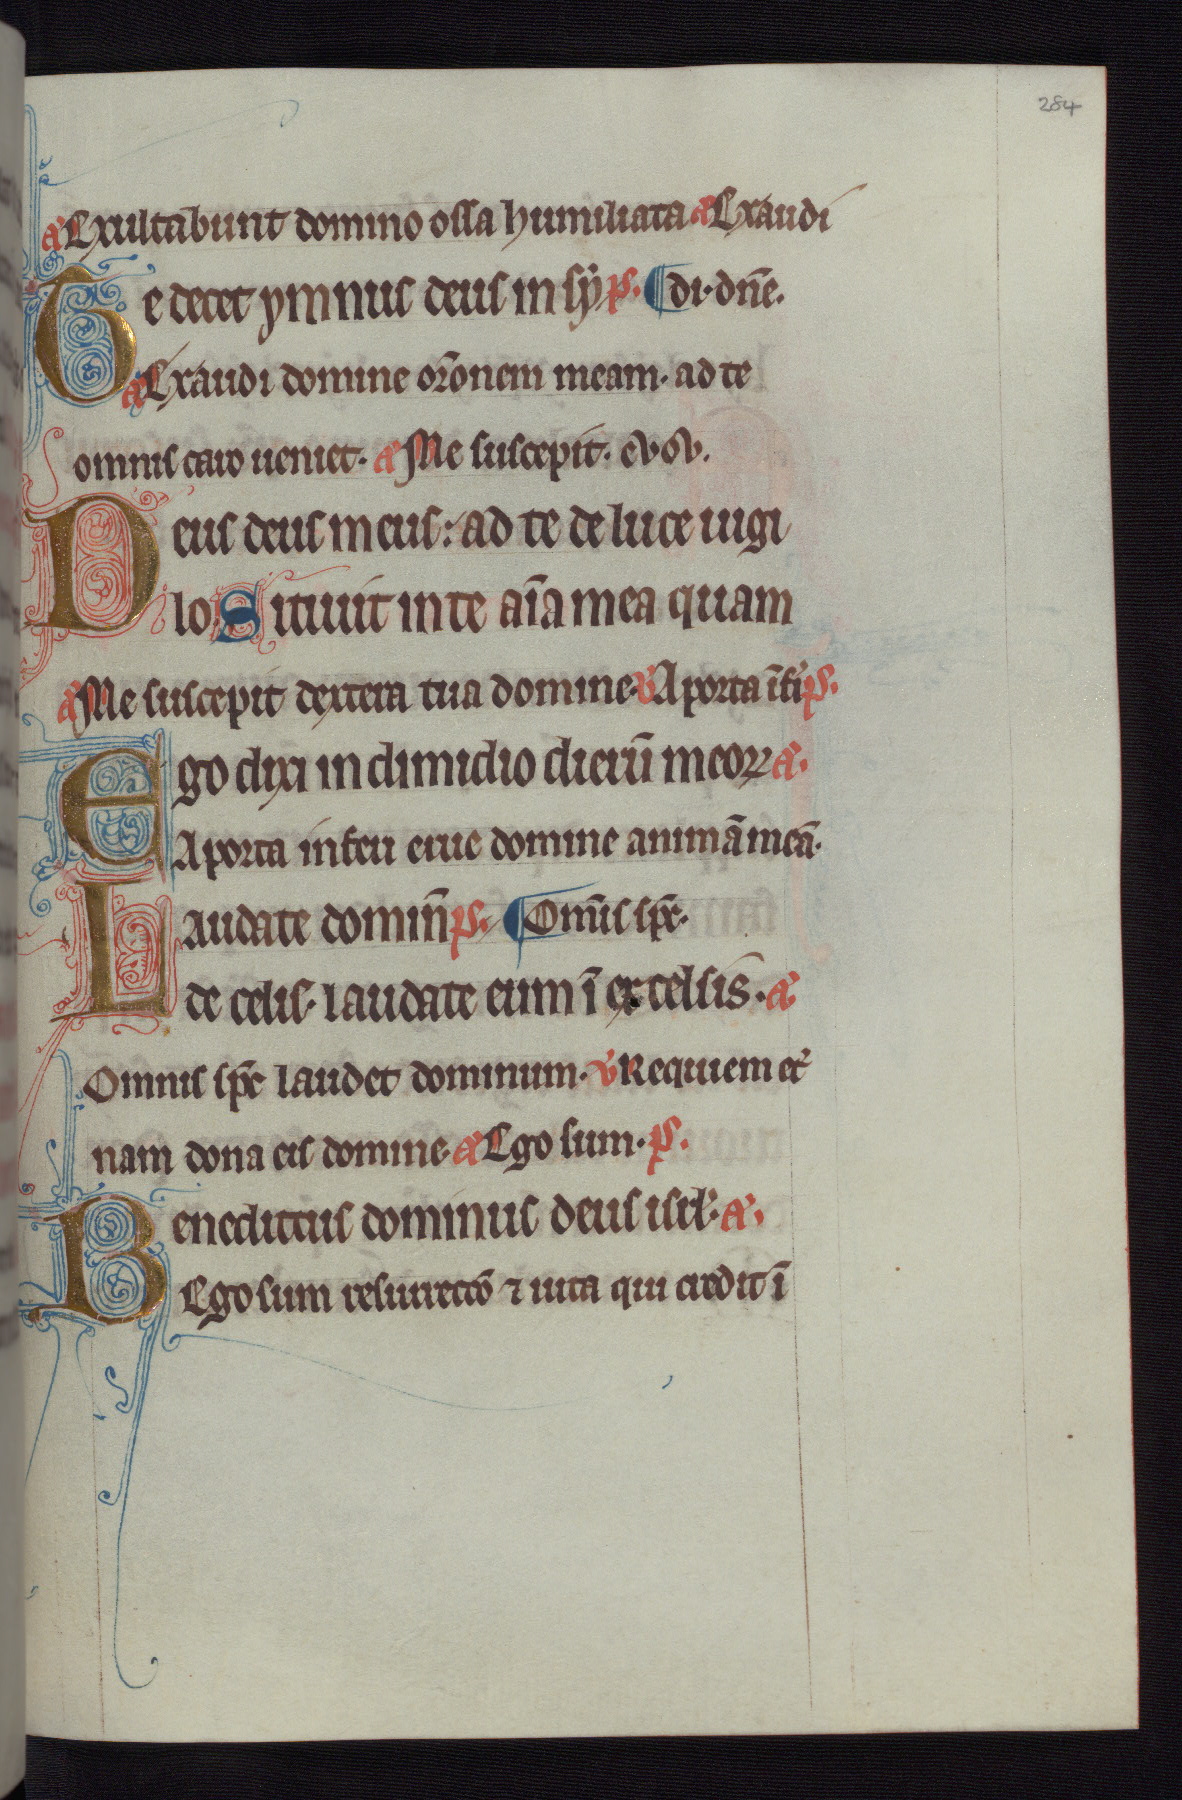 284
a Exultabunt domino ossa humiliata a Exaudi
Te decet ymnus deus in syō ps. ¶ di· dn̄e.
a Exaudi domine or̄onem meam· ad te
omnis caro ueniet· a Me suscepit· evov.
Deus deus meus: ad te de luce uigi
lo. Sitiuit in te aīa mea quam
a Me suscepit dextera tua domine· v A porta īferi ps.
Ego dixi in dimidio dierū meoꝝ a.
A porta inferi erue domine animā meā·
Laudate dominū ps. ¶ Omnis spc̄·
de celis· laudate eum ī excelsis. a.
Omnis spc̄ laudet dominum· v Requiem et
nam dona eis domine· a Ego sum· ps.
Benedictus dominus deus isrl· a.
Ego sum resurrectō ⁊ uita qui credit ī